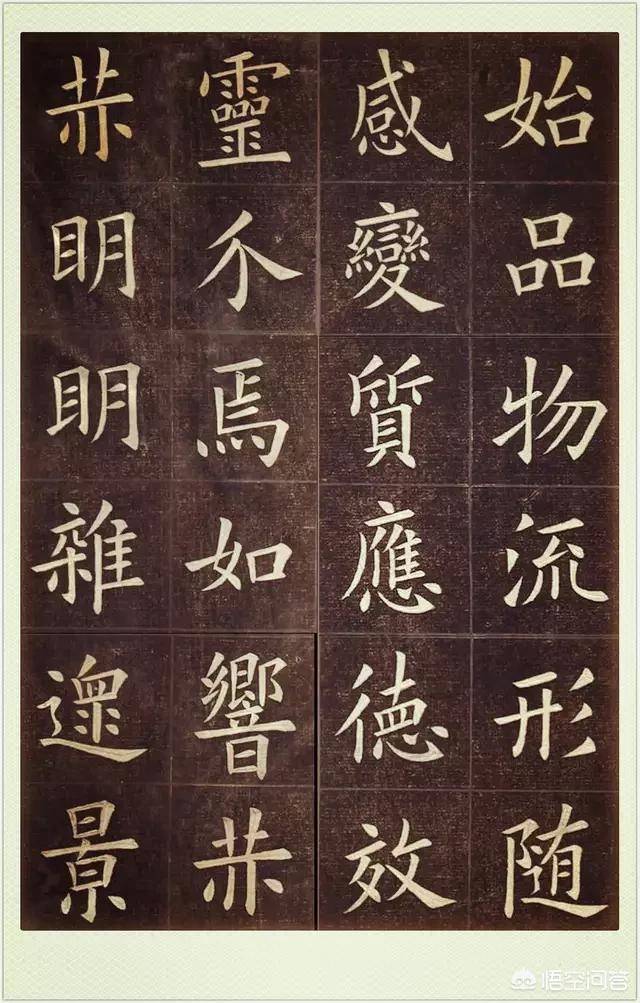 始品物流形随
感變質應徳效
靈介焉如響
明明雜遝景
悟空问答